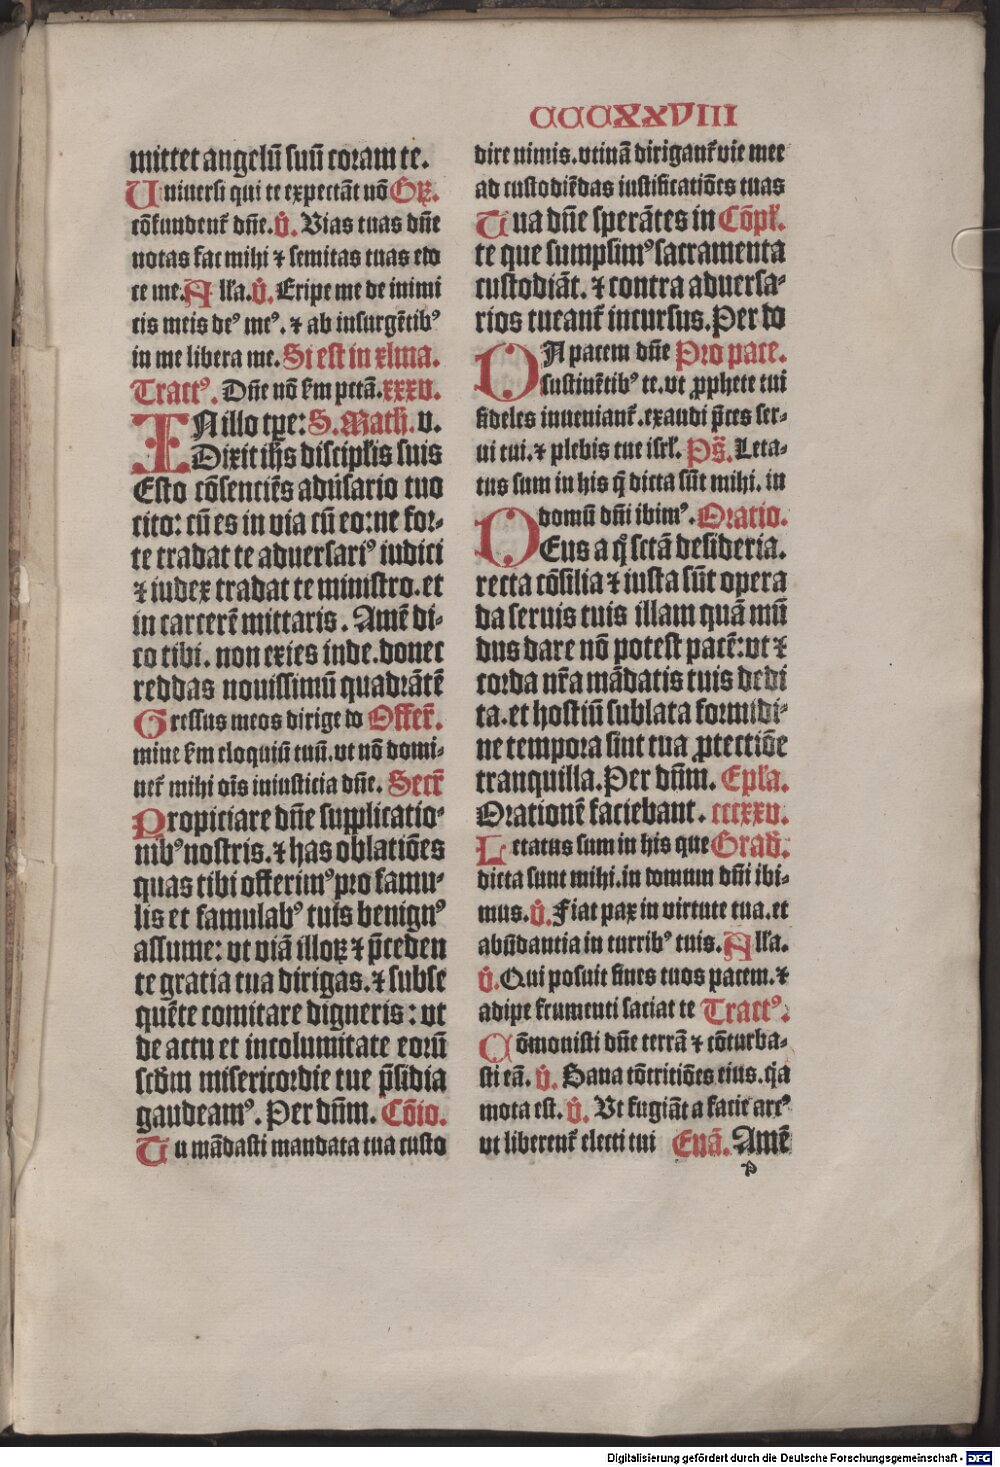 CCCXXVIII
mittet angelū suū coram te.
Uniuersi qui te expectāt nō Gꝛꝫ.
cōfundent᷑ dn̄e. v̉. Vias tuas dn̄e
notas fac mihi ⁊ semitas tuas edo
ce me. Alľa. v̉. Eripe me de inimi
cis meis deꝰ meꝰ. ⁊ ab insurgētibꝰ
in me libera me. Si est in xlma.
Tractꝰ. Dn̄e nō fm pctā. xxxv.
IN illo tꝑe: S. Math. v.
Dixit ih̄s discipľis suis
Esto cōsenciēs adūsario tuo
cito: cū es in via cū eo: ne for⸗
te tradat te aduersariꝰ iudici
⁊ iudex tradat te ministro. et
in carcerē mittaris. Amē di⸗
co tibi. non exies inde. donec
reddas nouissimū quadrātē
Gressus meos dirige do Offer̄.
mine fm eloquiū tuū. vt nō domi⸗
net᷑ mihi oīs iniusticia dn̄e. Secr̄
Propiciare dn̄e supplicatio⸗
nibꝰ nostris. ⁊ has oblatiōes
quas tibi offerimꝰ pro famu⸗
lis et famulabꝰ tuis benignꝰ
assume: vt viā illoꝝ ⁊ p̄ceden
te gratia tua dirigas. ⁊ subse
quēte comitare digneris: vt
de actu et incolumitate eorū
scd̄m misericordie tue p̄sidia
gaudeamꝰ. Per dn̄m. Cōio.
Tu mādasti mandata tua custo
dire nimis. vtinā dirigant᷑ vie mee
ad custodiēdas iustificatiōes tuas
Tua dn̄e sperātes in Cōpľ.
te que sumpsimꝰ sacramenta
custodiāt. ⁊ contra aduersa⸗
rios tueant᷑ incursus. Per do
DA pacem dn̄e Pro pace.
sustinētibꝰ te. vt ꝓphete tui
fideles inueniant᷑. exaudi p̄ces ser⸗
ui tui. ⁊ plebis tue isrľ. Ps̄. Leta⸗
tus sum in his q̄ dicta sūt mihi. in
domū dn̄i ibimꝰ. Oratio.
DEus a q̊ sctā desideria.
recta cōsilia ⁊ iusta sūt opera
da seruis tuis illam quā mū
dus dare nō potest pacē: vt ⁊
corda nr̄a mādatis tuis dedi
ta. et hostiū sublata formidi⸗
ne tempora sint tua ꝓtectiōe
tranquilla. Per dn̄m. Epľa.
Orationē faciebant. cccxxv.
Letatus sum in his que Grad̄.
dicta sunt mihi. in domum dn̄i ibi⸗
mus. v̉. Fiat pax in virtute tua. et
abūdantia in turribꝰ tuis. Alľa.
v̉. Qui posuit fines tuos pacem. ⁊
adipe frumenti saciat te Tractꝰ.
Cōmouisti dn̄e terrā ⁊ cōturba⸗
sti eā. v̉. Sana cōtritiōes eius. q̇a
mota est. v̉. Vt fugiāt a facie arcꝰ
vt liberent᷑ electi tui Euā. Amē
Digitalisierung gefördert durch die Deutsche Forschungsgemeinschaft - DFG